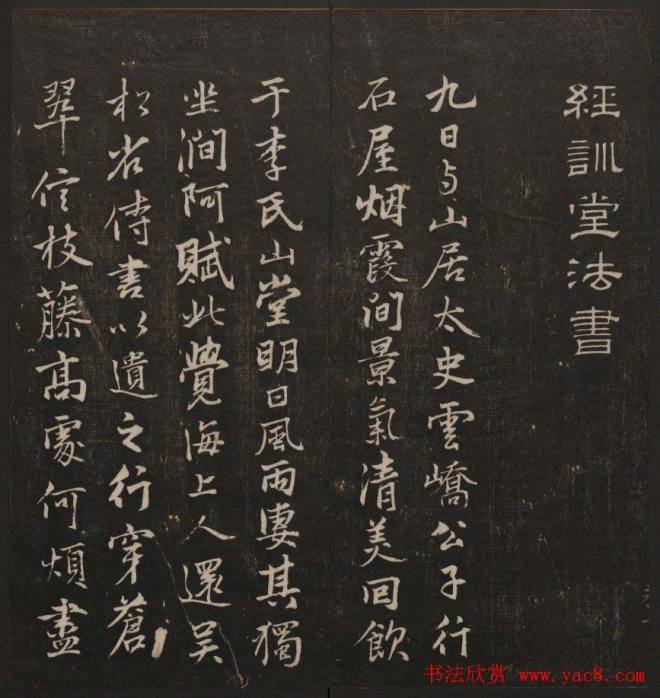 經訓堂法書
九日与山居太史雲嶠公子行
石屋烟霞澗景氣清美回飲
于李氏山堂明日風雨凄其獨
坐澗阿賦此覺海上人還吴
松省侍書以遺之行穿蒼
翠信枝藤高處何煩盡
书法欣赏 www.yac8.com